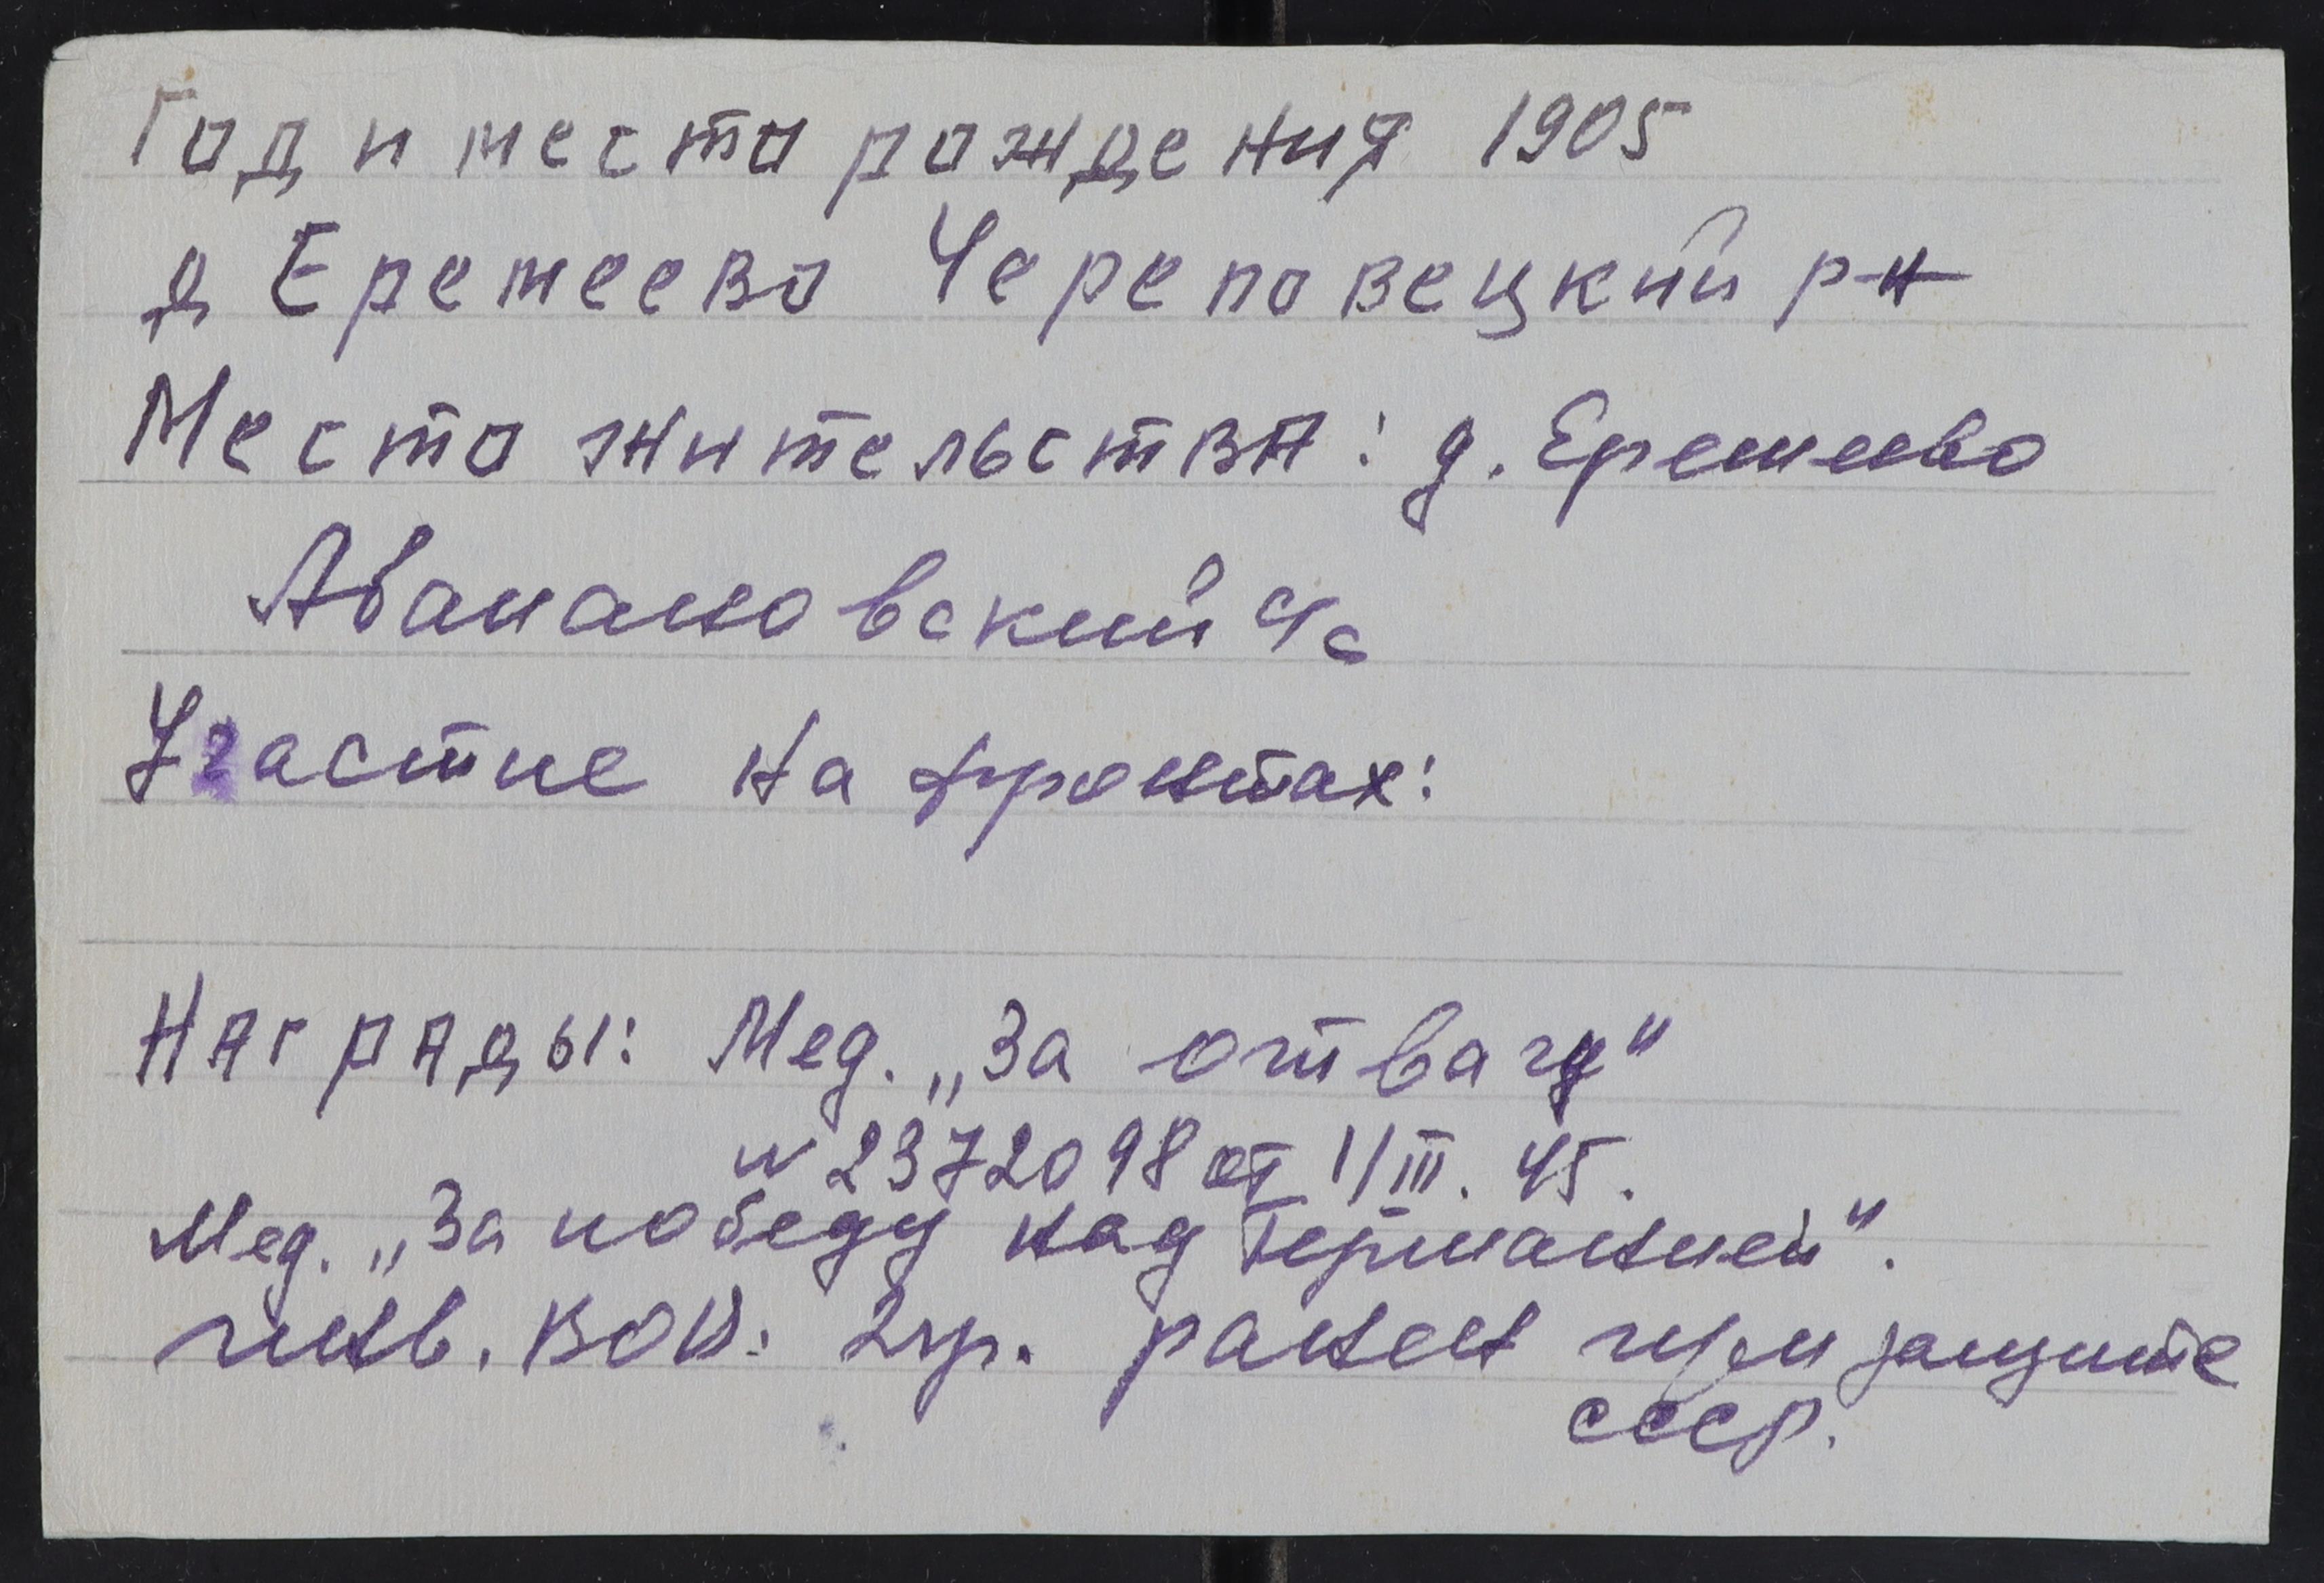 Год и место рождения 1905
д Еремеево Череповецкий р-н
Место жительства: д. Еремеево
Абакановский с/с
Участие на фронтах:
Награды: Мед. „За отвагу"
№ 2372098 от 1/III. 45.
Мед. „За победу над Германией".
инв. ВОВ. 2гр. ранен при защите
СССР.